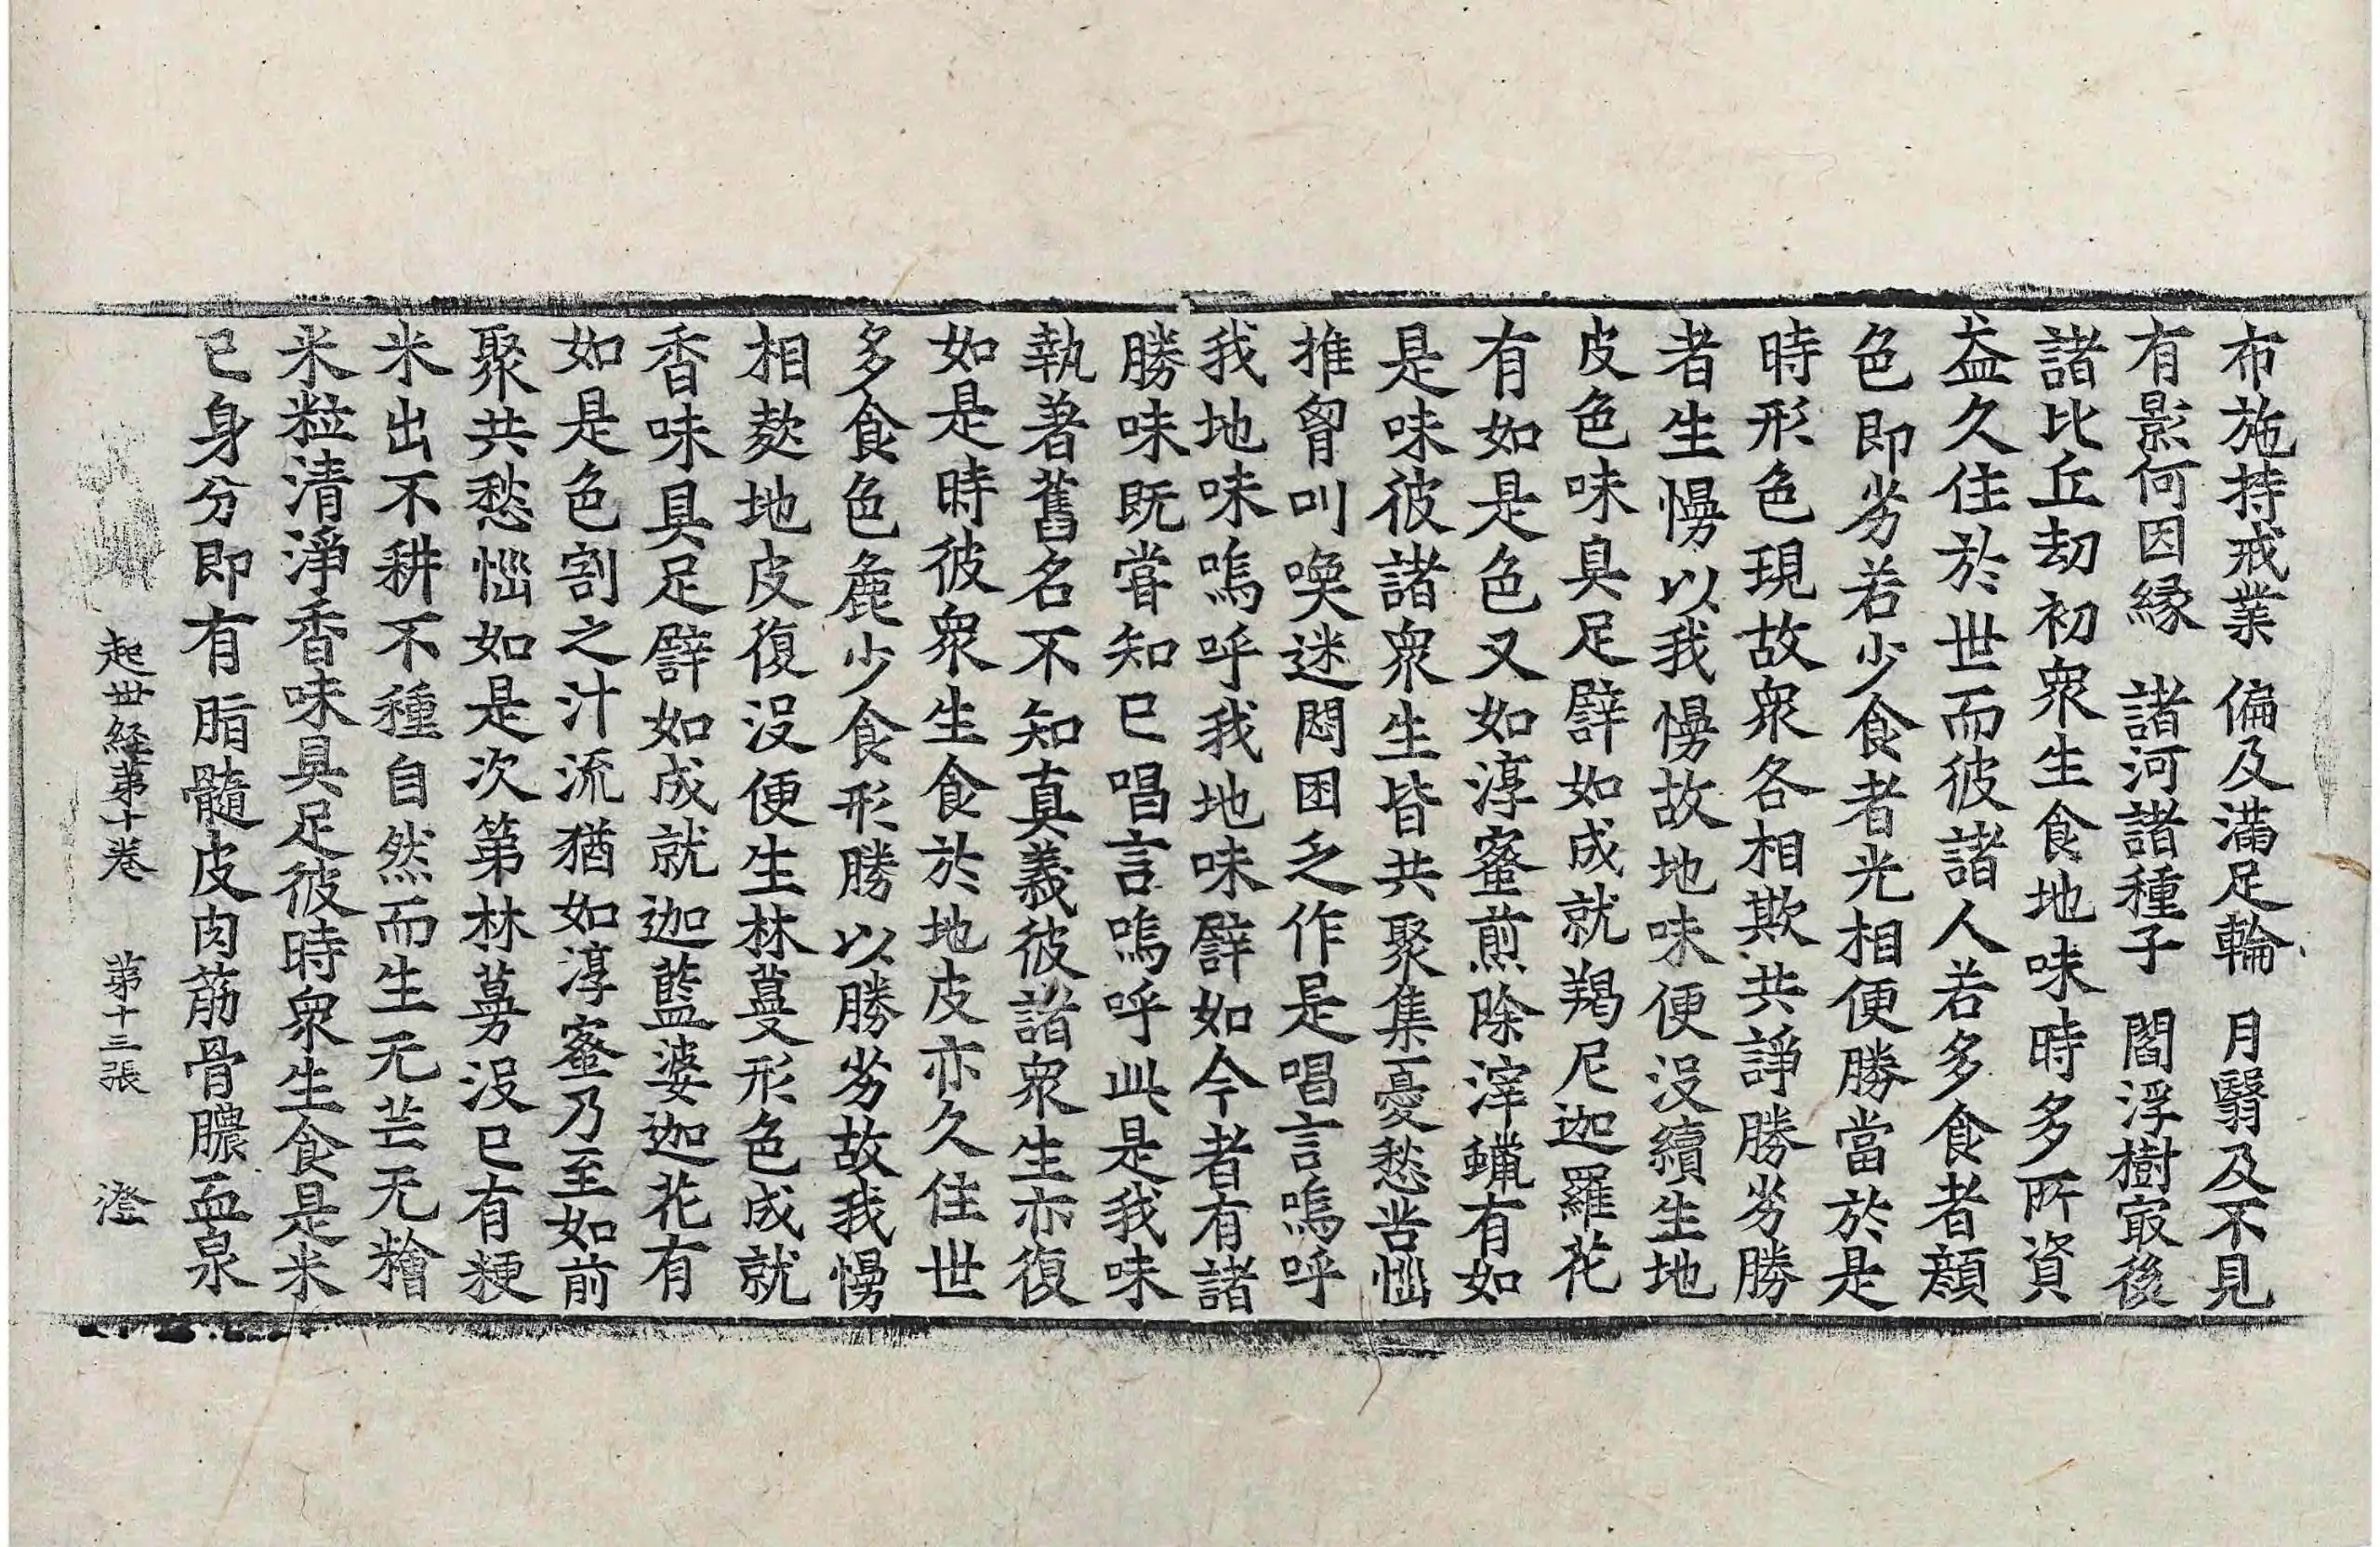 布施持戒業　偏及滿足輪　月翳及不見
有影何因緣　諸河諸種子　閻浮樹㝡後
諸比丘劫初衆生食地味時多所資
益久住於世而彼諸人若多食者顔
色即劣若少食者光相便勝當於是
時形色現故衆各相欺共諍勝劣勝
者生慢以我慢故地味便没續生地
皮色味具足譬如成就羯尼迦羅花
有如是色又如淳蜜煎除滓蠟有如
是味彼諸衆生皆共聚集憂愁苦惱
推胷叫喚迷悶困乏作是唱言嗚呼
我地味嗚呼我地味譬如今者有諸
勝味既嘗知已唱言嗚呼此是我味
執著舊名不知真義彼諸衆生亦復
如是時彼衆生食於地皮亦久住世
多食色麁少食形勝以勝劣故我慢
相欺地皮復没便生林蔓形色成就
香味具足譬如成就迦藍婆迦花有
如是色割之汁流猶如淳蜜乃至如前
聚共愁惱如是次第林蔓没已有粳
米出不耕不種自然而生无芒无𥢶
米粒清淨香味具足彼時衆生食是米
已身分即有脂髓皮肉筋骨膿血泉
起世経第十卷　第十三張　澄